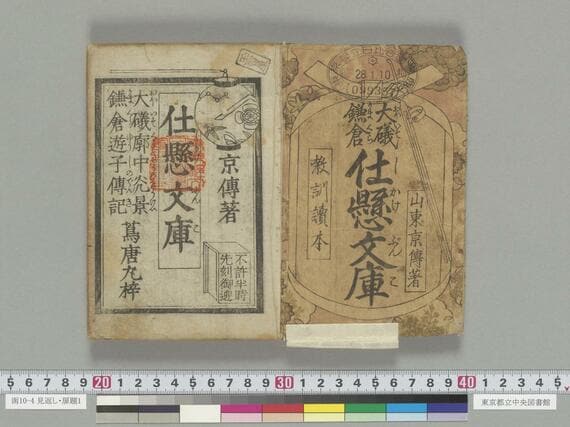 28.1.10
大礒
鎌倉
仕懸文庫
しかけぶんこ
山東京傳著
教訓讀本
京傳著
仕懸文庫
大礒廓中光景
鎌倉遊子傳記
蔦唐丸梓
不許半時
先刻御遊
5 6 7 8 9 20 1 2 3 4 5 6 7 8 9 30 1 2 3 4 5 6 7 8 9 40 1 2 3 4 5
函10-4 見返し・扉題1
東京都立中央図書館